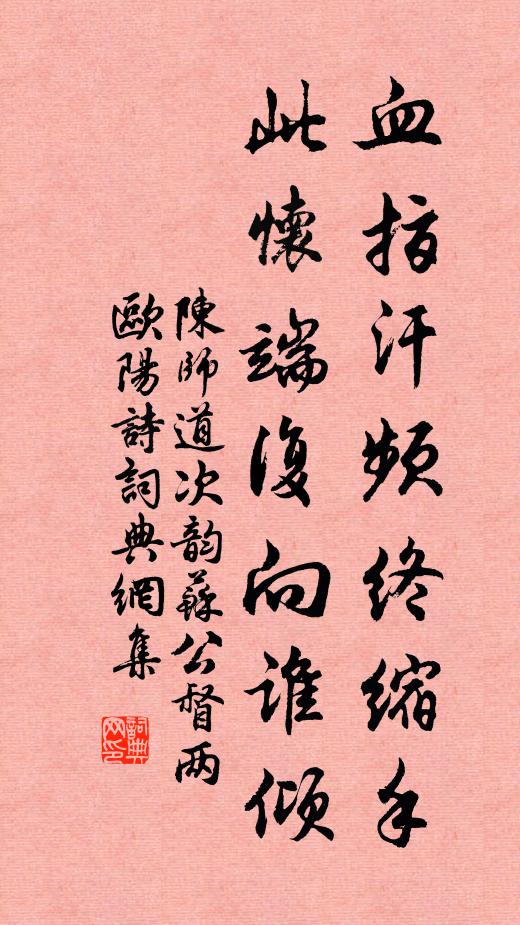 血指汗頻終縮手
此懷端復向誰傾
陳師道次韵蘇公督两
歐陽詩詞典網集
詞典网印